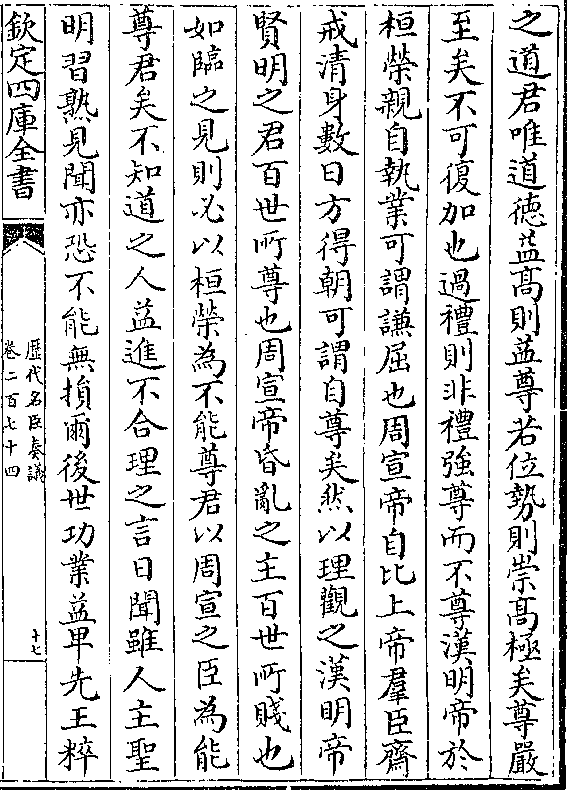 之道君唯道德益髙則益尊若位勢則崇髙極矣尊嚴
至矣不可復加也過禮則非禮強尊而不尊漢明帝於
桓榮親自執業可謂謙屈也周宣帝自比上帝羣臣齋
戒清身數日方得朝可謂自尊矣然以理觀之漢明帝
賢明之君百世所尊也周宣帝昏亂之主百世所賤也
如臨之見則必以桓榮為不能尊君以周宣之臣為能
尊君矣不知道之人益進不合理之言日聞雖人主聖
明習熟見聞亦恐不能無損爾後世功業益卑先王粹
欽定四庫全書
歴代名臣奏議
卷二百七十四
十七